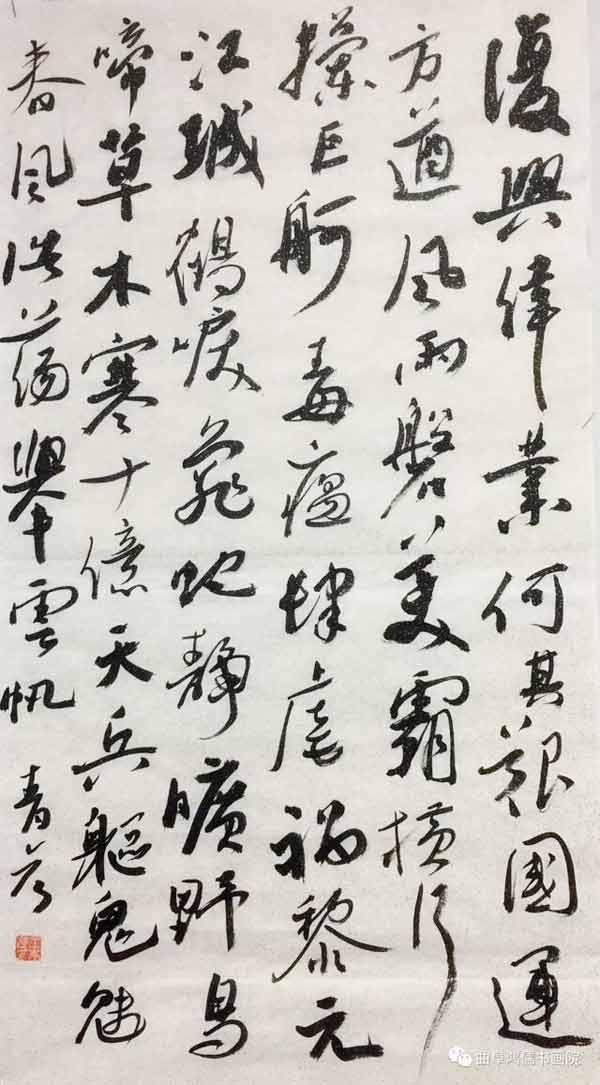 復興偉業何其艱國運
方遒風雨磐美霸横行
攔巨舸毒瘟肆虐禍黎元
江城鶴唳地靜曠野鳥
啼草木寒十億天兵驅鬼魅
春風浩蕩舉雲帆
青
曲阜鸿儒书画院